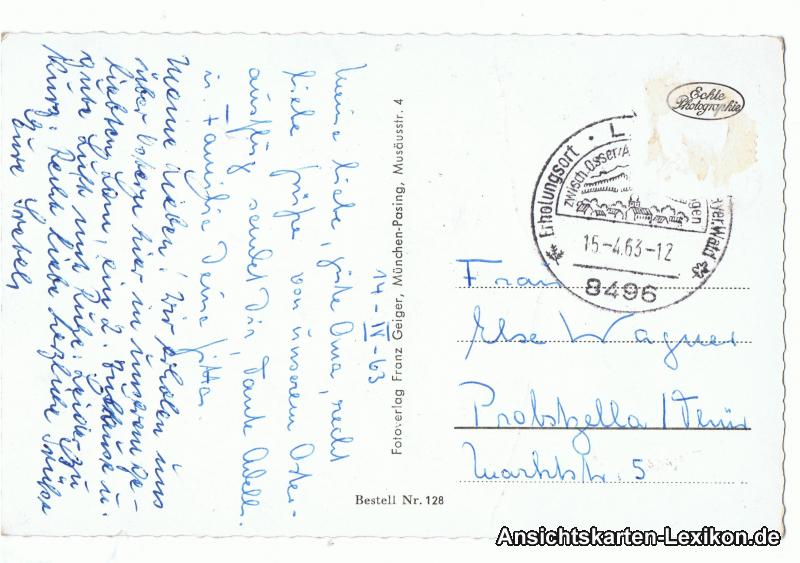 14-IV-63
Meine liebe, gute Oma, recht
liebe Grüße von unserem Oster-
ausflug sendet Dir, Tante Adele
u. Familie Deine Jutta.
Meine Lieben! Wir erholen uns
über Ostern hier in unserem
u.
gute Luft und Ruhe. Leider zu
kurz. Recht liebe herzliche Grüße
Eure
Fotoverlag Franz Geiger, München-Pasing, Musäusstr. 4
Bestell Nr. 128
Echte
Photographie
Erholungsort · L
zwisch. Osser
15.-4.63-12
8496
Frau
Else Wagner
Probstzella / Thür
Marktstr. 5
Ansichtskarten-Lexikon.de